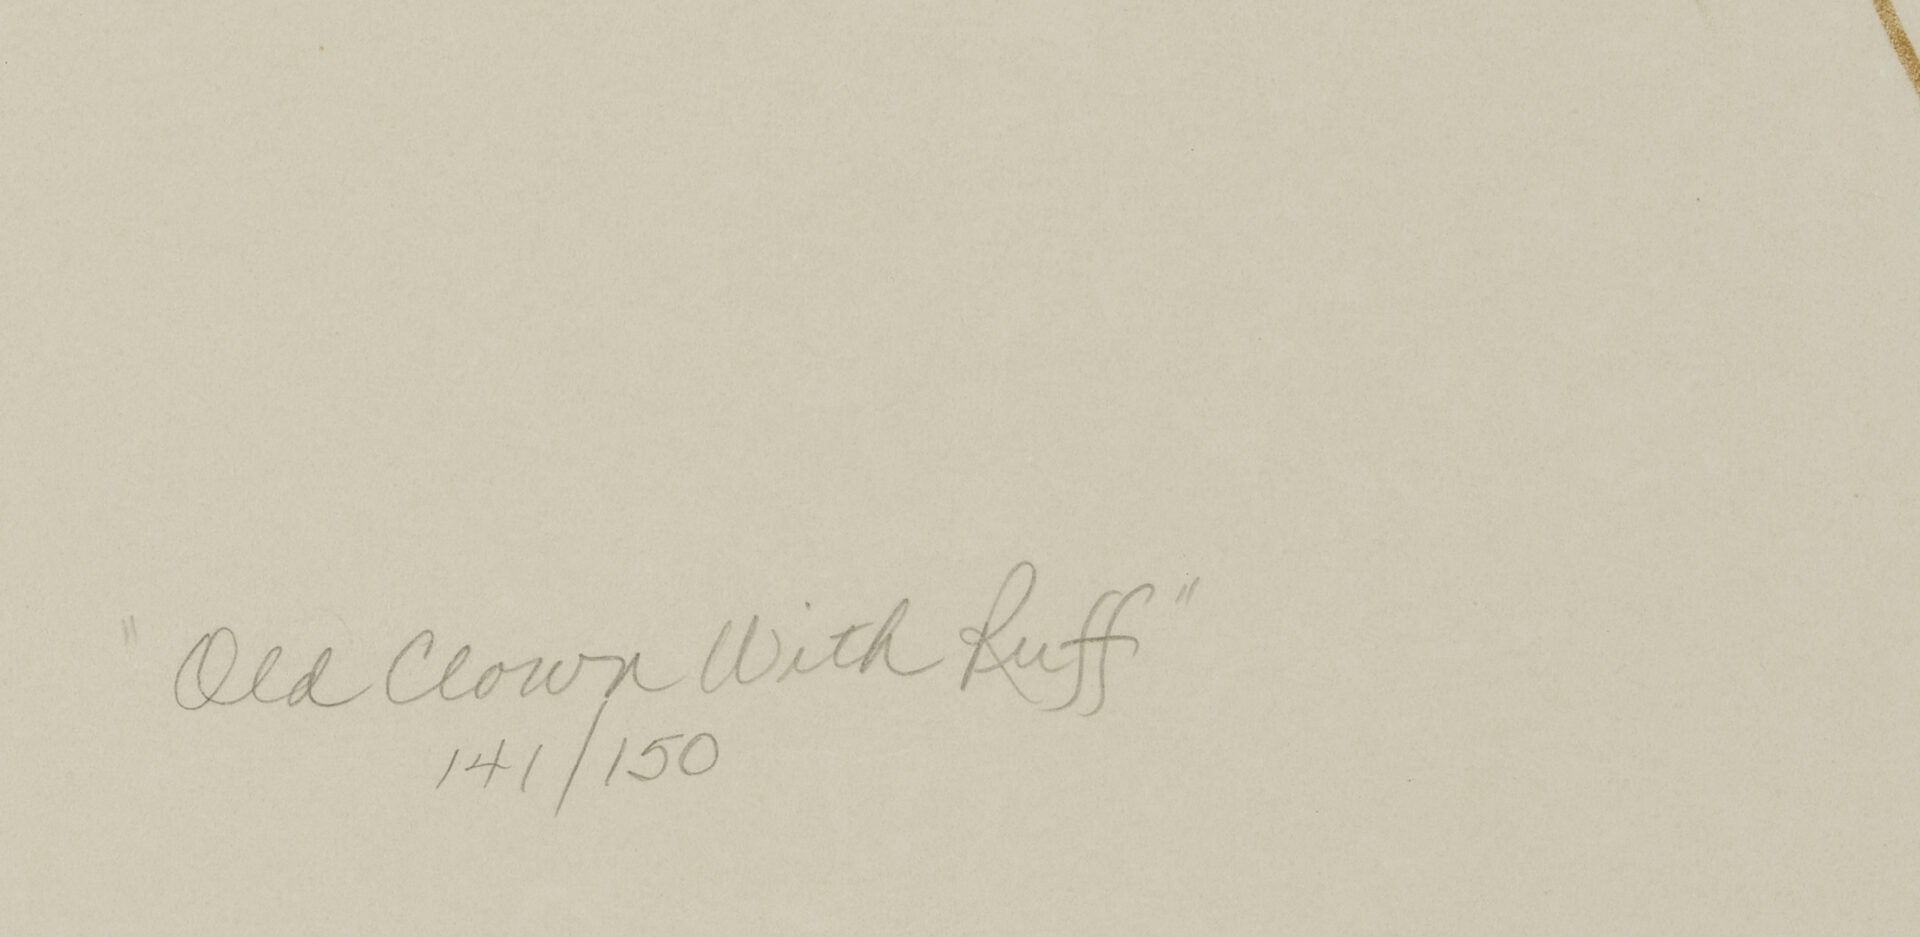 "Old Clown With Ruff"
141/150